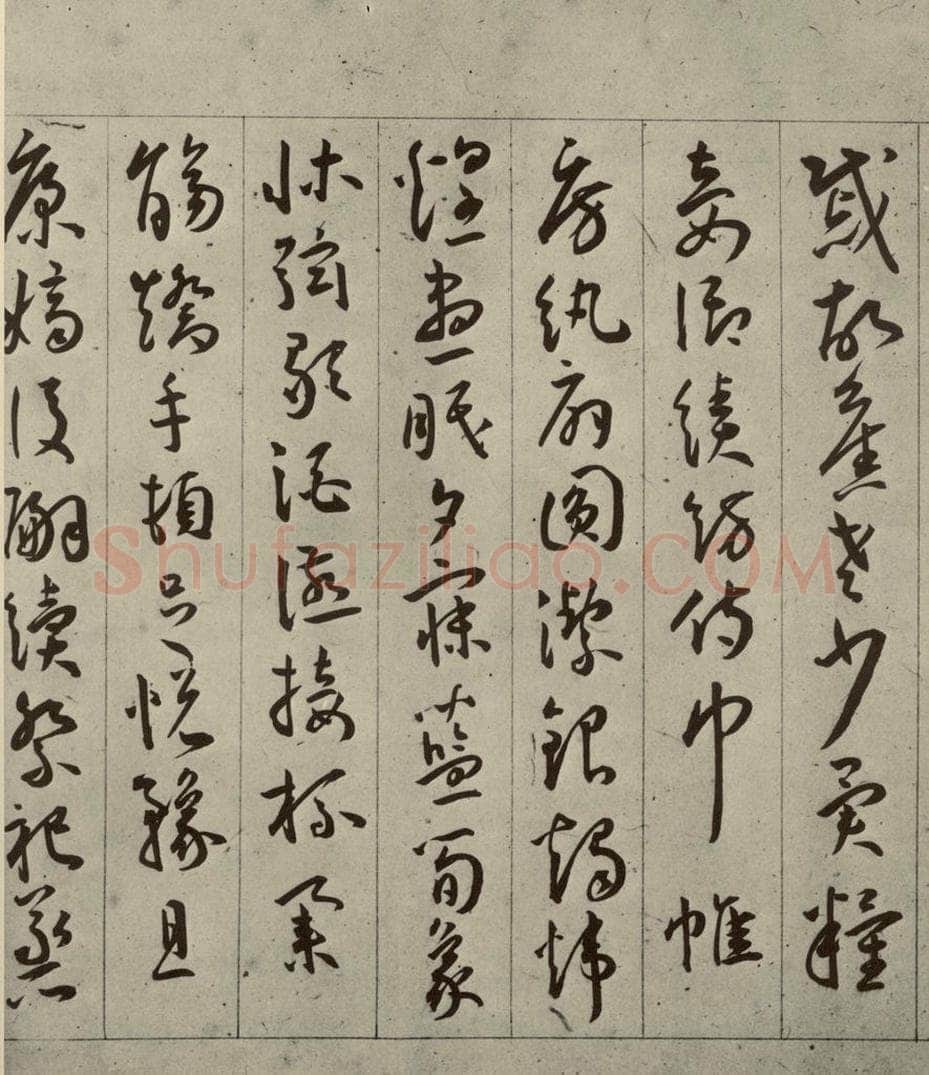 戚故舊老少異糧
妾御績紡侍巾帷
房紈扇圓潔銀燭煒
煌晝眠夕寐藍筍象
牀弦歌酒讌接杯舉
觴矯手頓足悅豫且
康嫡後嗣續祭祀蒸
Shufaziliao.COM